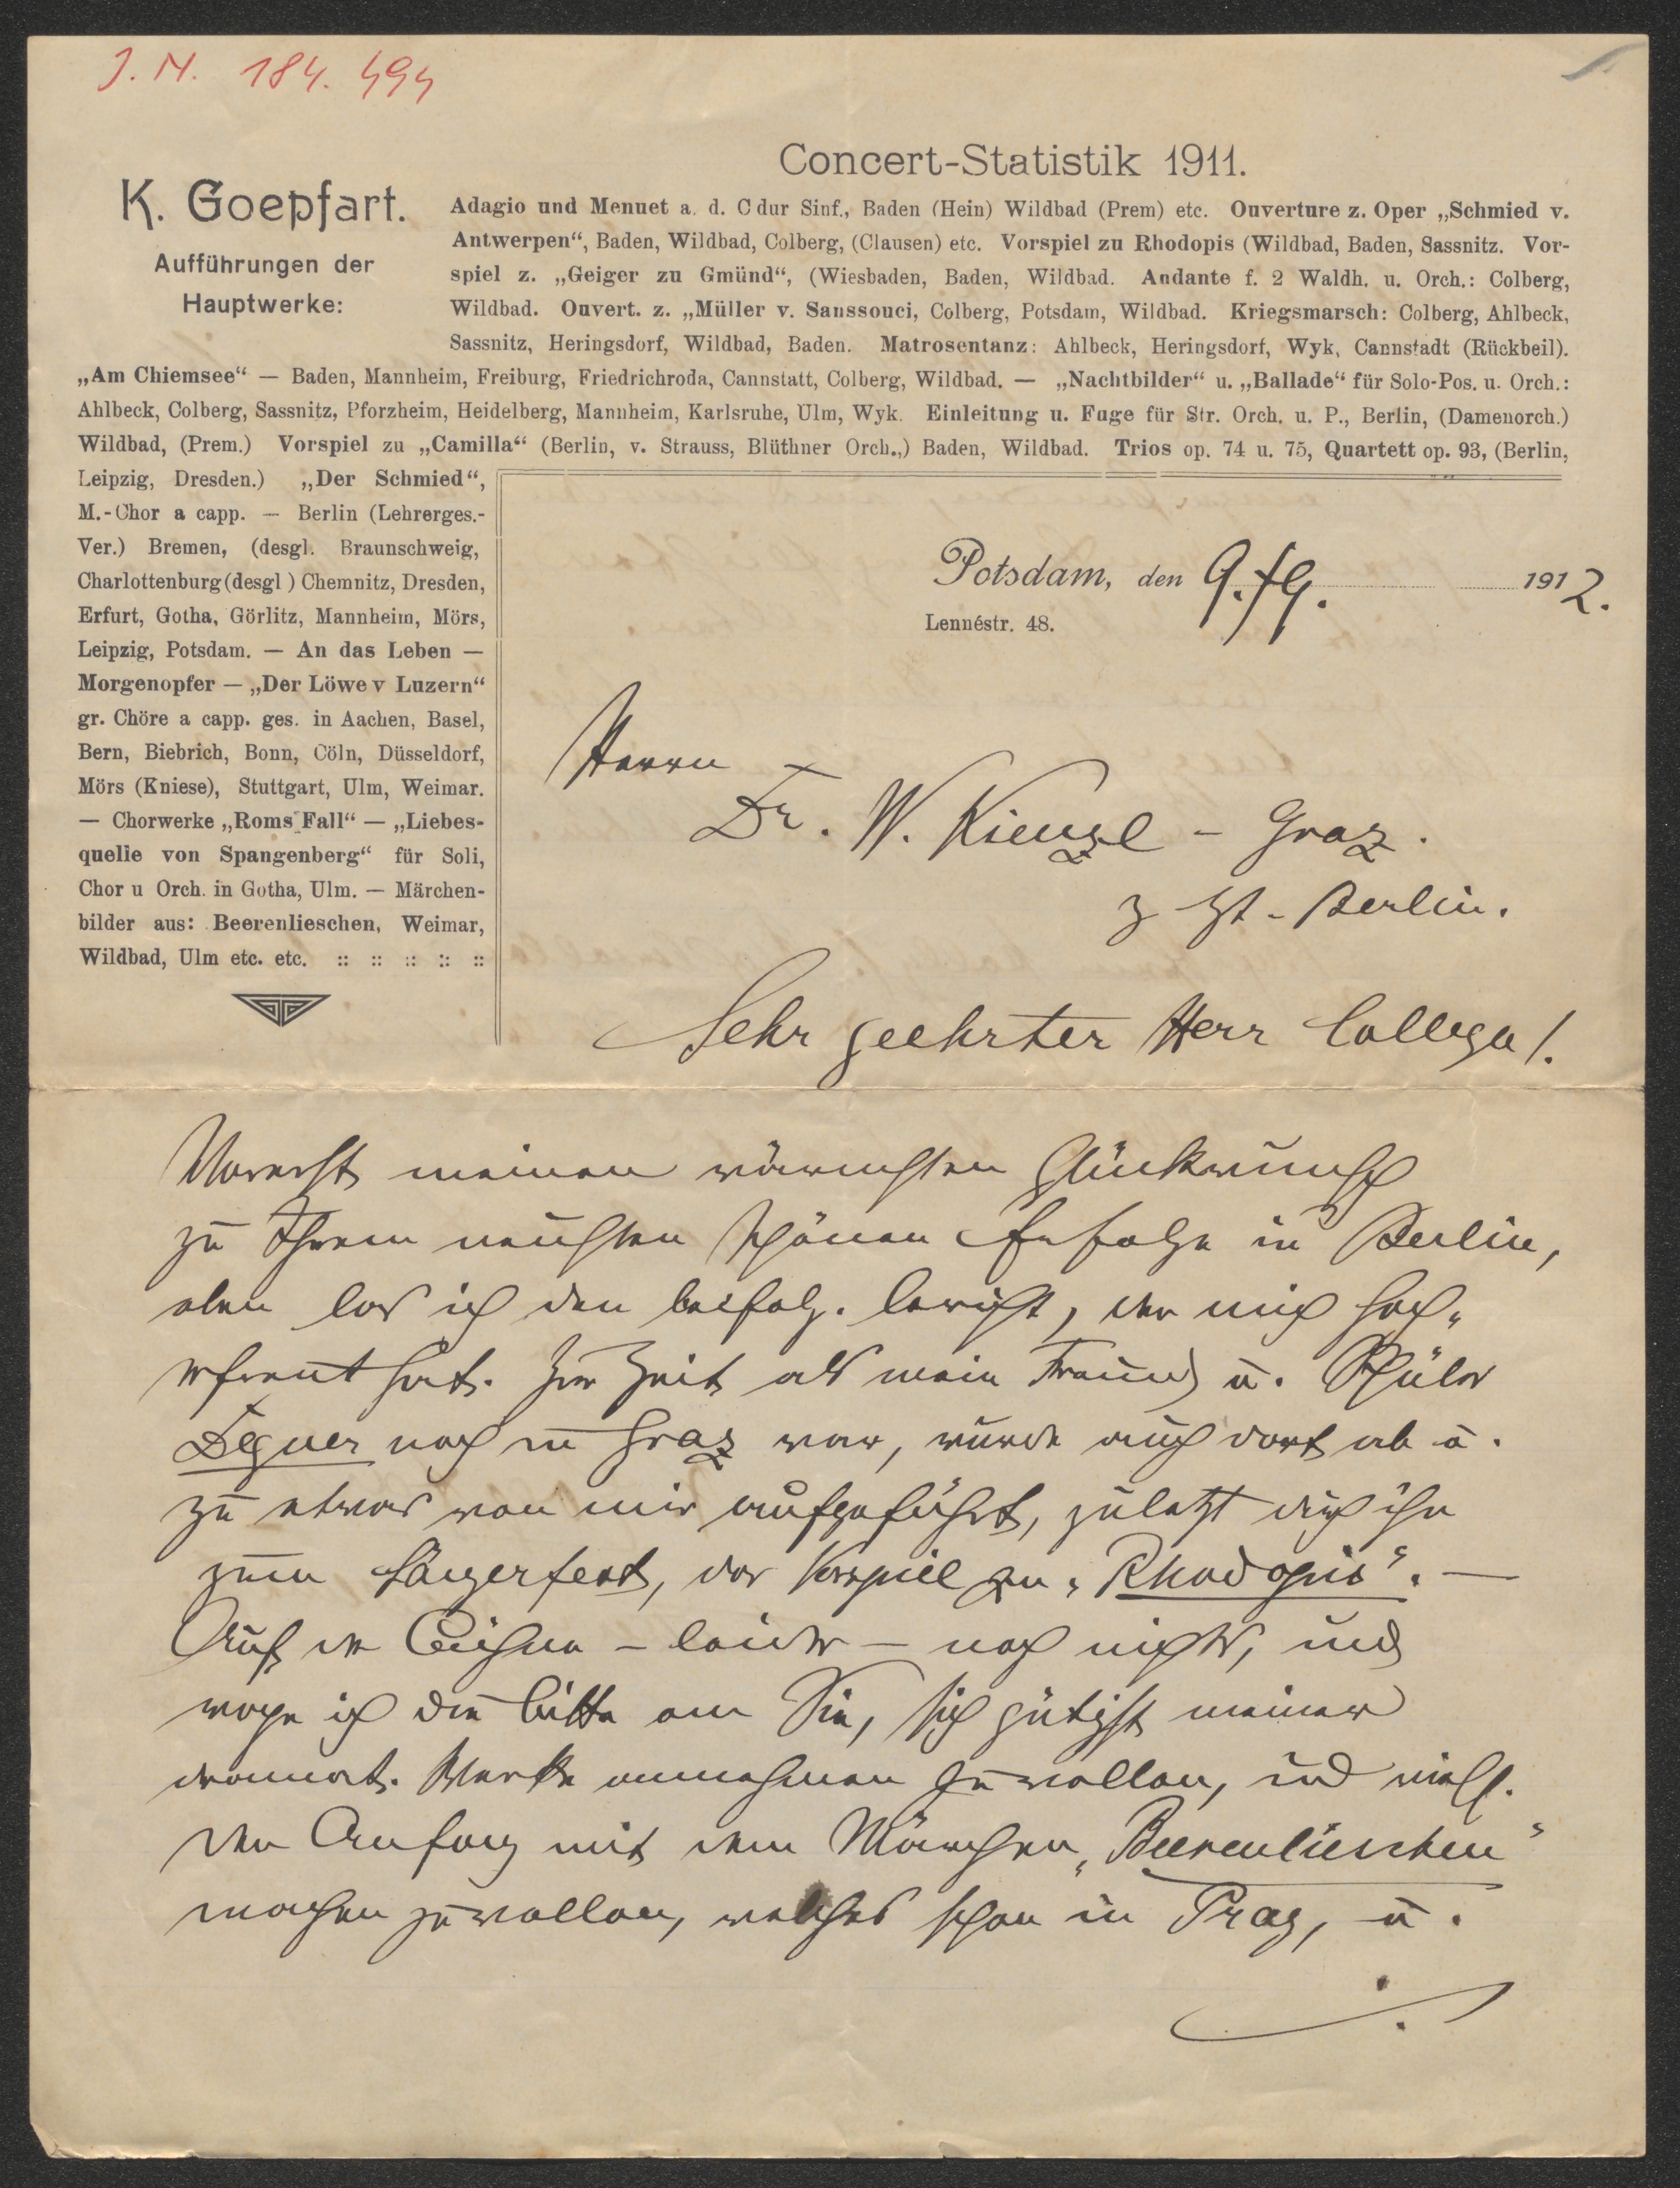 J. N. 184.494
Concert-Statistik 1911.
K. Goepfart.
Aufführungen der
Hauptwerke:
Adagio und Menuet a. d. C dur Sinf., Baden (Hein) Wildbad (Prem) etc. Ouverture z. Oper „Schmied v.
Antwerpen“, Baden, Wildbad, Colberg, (Clausen) etc. Vorspiel zu Rhodopis (Wildbad, Baden, Sassnitz. Vor-
spiel z. „Geiger zu Gmünd“, (Wiesbaden, Baden, Wildbad. Andante f. 2 Waldh. u. Orch.: Colberg,
Wildbad. Ouvert. z. „Müller v. Sanssouci, Colberg, Potsdam, Wildbad. Kriegsmarsch: Colberg, Ahlbeck,
Sassnitz, Heringsdorf, Wildbad, Baden. Matrosentanz: Ahlbeck, Heringsdorf, Wyk, Cannstadt (Rückbeil).
„Am Chiemsee“ — Baden, Mannheim, Freiburg, Friedrichroda, Cannstatt, Colberg, Wildbad. — „Nachtbilder“ u. „Ballade“ für Solo-Pos. u. Orch.:
Ahlbeck, Colberg, Sassnitz, Pforzheim, Heidelberg, Mannheim, Karlsruhe, Ulm, Wyk. Einleitung u. Fuge für Str. Orch. u. P., Berlin, (Damenorch.)
Wildbad, (Prem.) Vorspiel zu „Camilla“ (Berlin, v. Strauss, Blüthner Orch.,) Baden, Wildbad. Trios op. 74 u. 75, Quartett op. 93, (Berlin,
Leipzig, Dresden.) „Der Schmied“,
M.-Chor a capp. — Berlin (Lehrerges.-
Ver.) Bremen, (desgl. Braunschweig,
Charlottenburg (desgl ) Chemnitz, Dresden,
Erfurt, Gotha, Görlitz, Mannheim, Mörs,
Leipzig, Potsdam. — An das Leben —
Morgenopfer — „Der Löwe v Luzern“
gr. Chöre a capp. ges. in Aachen, Basel,
Bern, Biebrich, Bonn, Cöln, Düsseldorf,
Mörs (Kniese), Stuttgart, Ulm, Weimar.
— Chorwerke „Roms Fall“ — „Liebes-
quelle von Spangenberg“ für Soli,
Chor u Orch. in Gotha, Ulm. — Märchen-
bilder aus: Beerenlieschen, Weimar,
Wildbad, Ulm etc. etc. :: :: :: :: ::
Potsdam, den 9./9. 1912.
Lennéstr. 48.
Herrn
Dr. W. Kienzl - Graz.
z Zt - Berlin.
Sehr geehrter Herr Collega!.
Vorerst meinen wärmsten Glückwunsch
zu Ihrem neusten schönen Erfolge in Berlin,
eben las ich den beifolg. Bericht, der mich hoch-
erfreut hat. Zur Zeit als mein Freund u. Schüler
Degner noch in Graz war, wurde auch dort ab u.
zu etwas von mir aufgeführt, zuletzt durch ihn
zum Sängerfest, das Vorspiel zu „Rhodopis“. —
Auf der Bühne - leider - noch nichts, und
wage ich die Bitte an Sie, sich gütigst meiner
dramat. Werke annehmen zu wollen, und vielf.
den Anfang mit dem Märchen „Beerenlieschen“
machen zu wollen, welches schon in Prag, u.